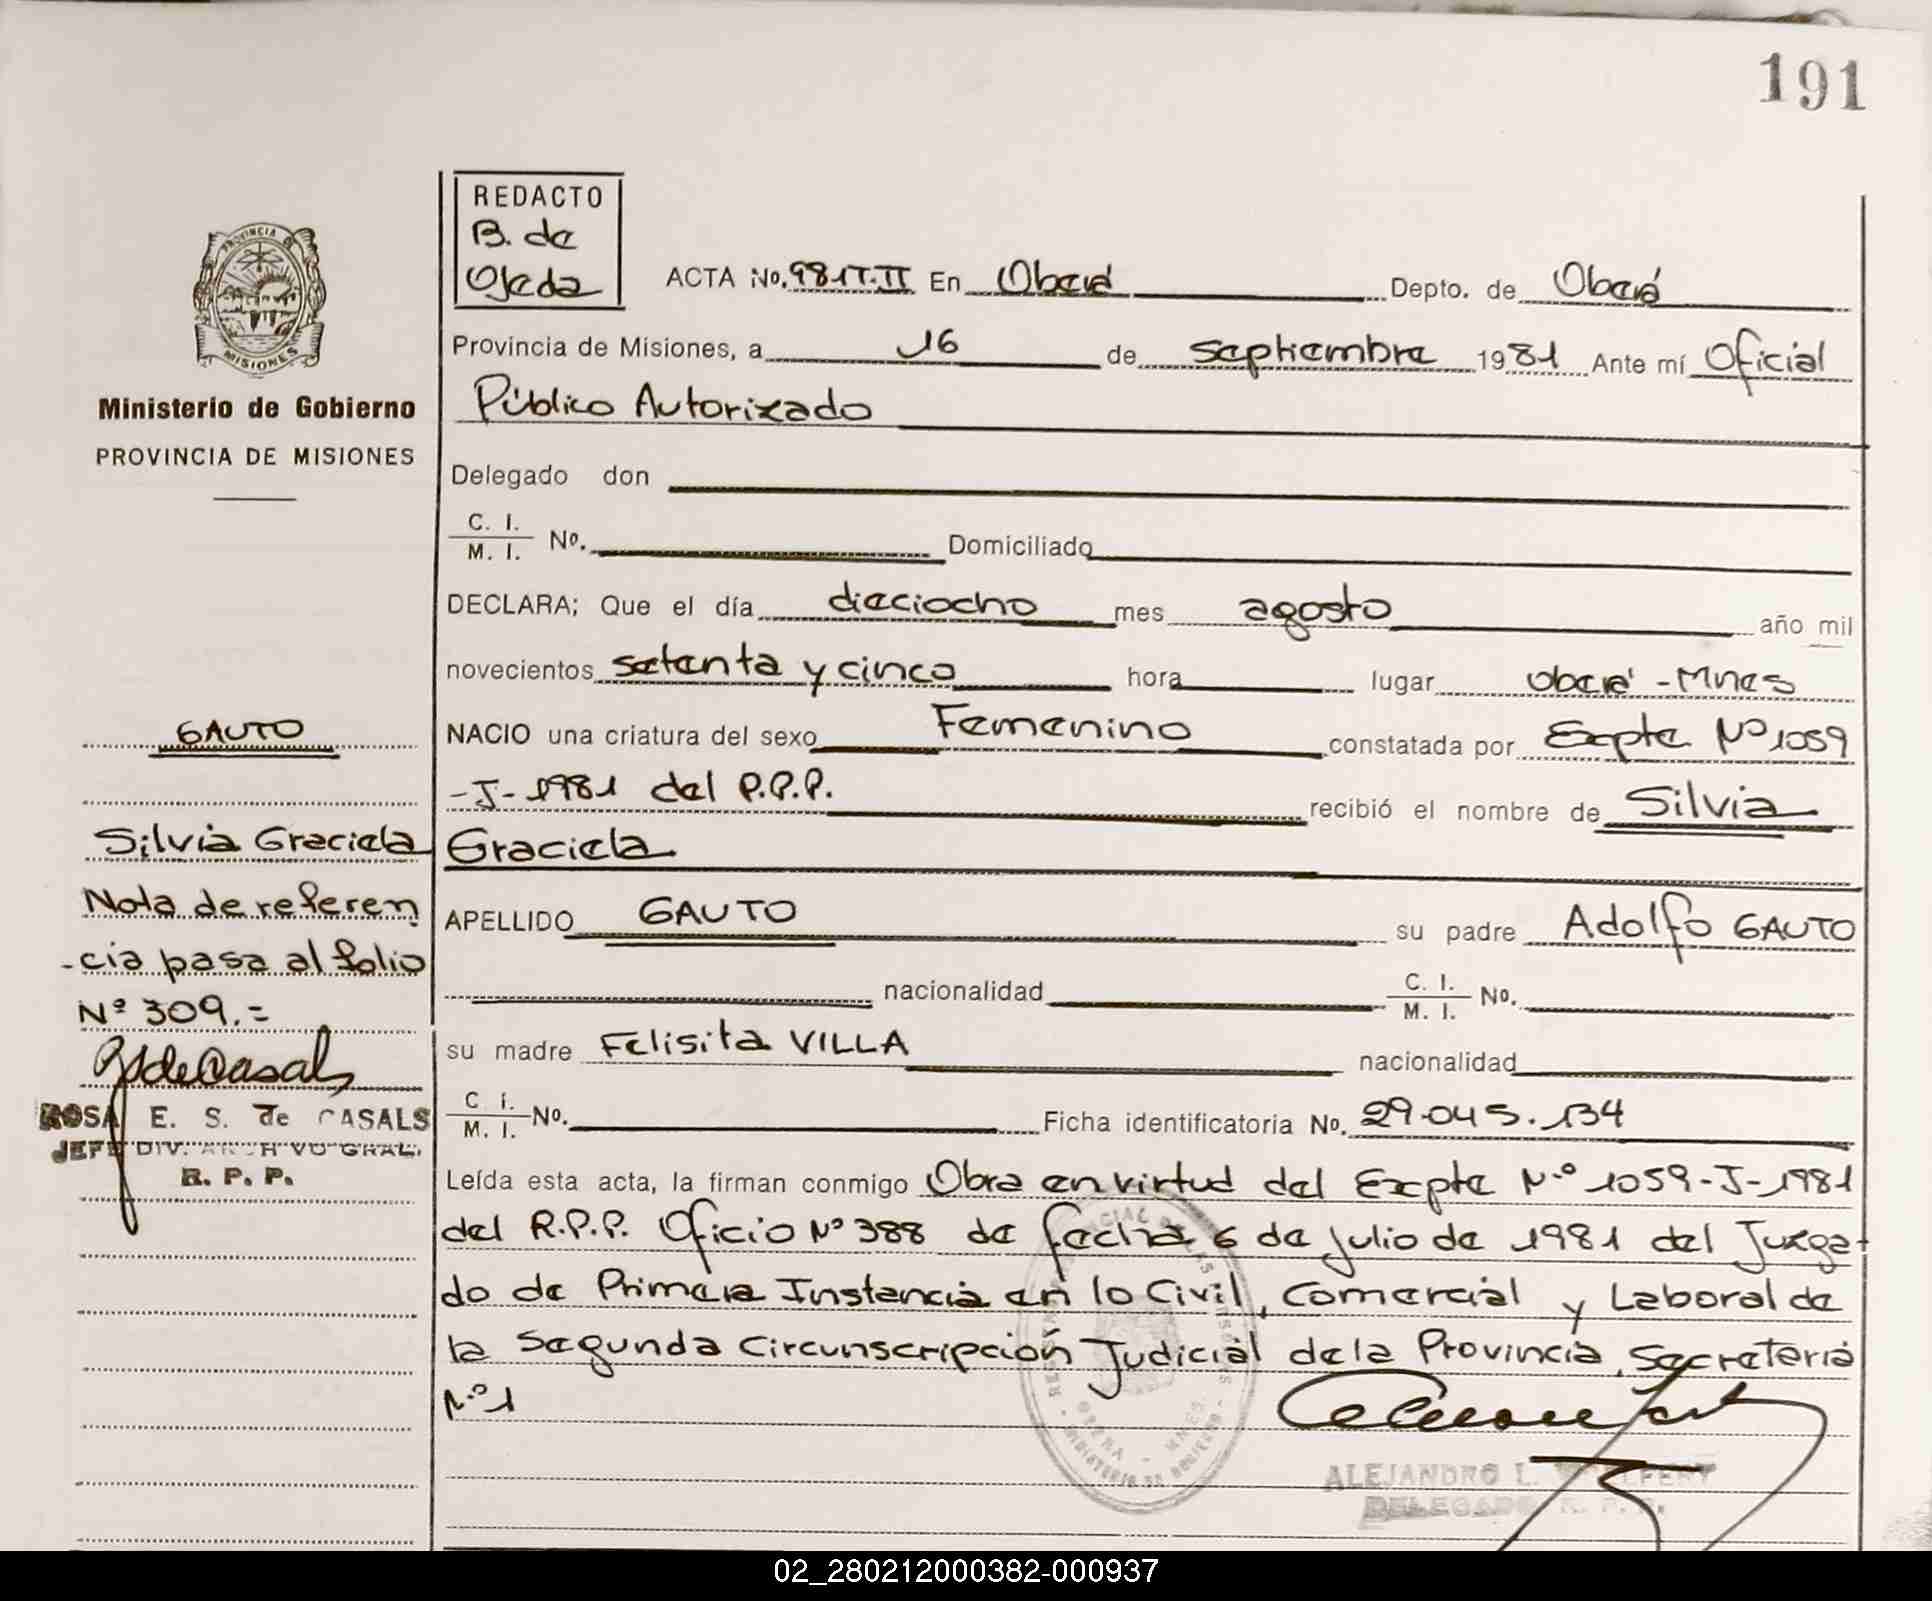 191
PROVINCIA DE
MISIONES
Ministerio de Gobierno
PROVINCIA DE MISIONES
REDACTO
B. de
Ojeda
ACTA No. 981T.II En Oberá Depto. de Oberá
Provincia de Misiones, a 16 de septiembre 1981 Ante mí Oficial
Público Autorizado
Delegado don
C. I.
M. I. No. Domiciliado
DECLARA; Que el día dieciocho mes agosto año mil
novecientos setenta y cinco hora lugar Oberá - Mnes
NACIO una criatura del sexo Femenino constatada por Expte Nº 1059
-J-1981 del P.P.P. recibió el nombre de Silvia
Graciela
APELLIDO GAUTO su padre Adolfo GAUTO
nacionalidad C. I.
M. I. No.
su madre Felisita VILLA nacionalidad
C. I.
M. I. No. Ficha identificatoria No. 29.045.134
Leída esta acta, la firman conmigo Obra en virtud del Expte Nº 1059-J-1981
del R.P.P. Oficio Nº 388 de fecha 6 de julio de 1981 del Juzga-
do de Primera Instancia en lo Civil, Comercial y Laboral de
la Segunda Circunscripción Judicial de la Provincia, Secretaria
Nº 1
ALEJANDRO L.
DELEGADO R. P. P.
GAUTO
Silvia Graciela
Nota de referen
-cia pasa al folio
Nº 309.=
RSdeCasals
ROSA E. S. de CASALS
JEFE DIV. ARCHIVO GRAL.
R. P. P.
02_280212000382-000937